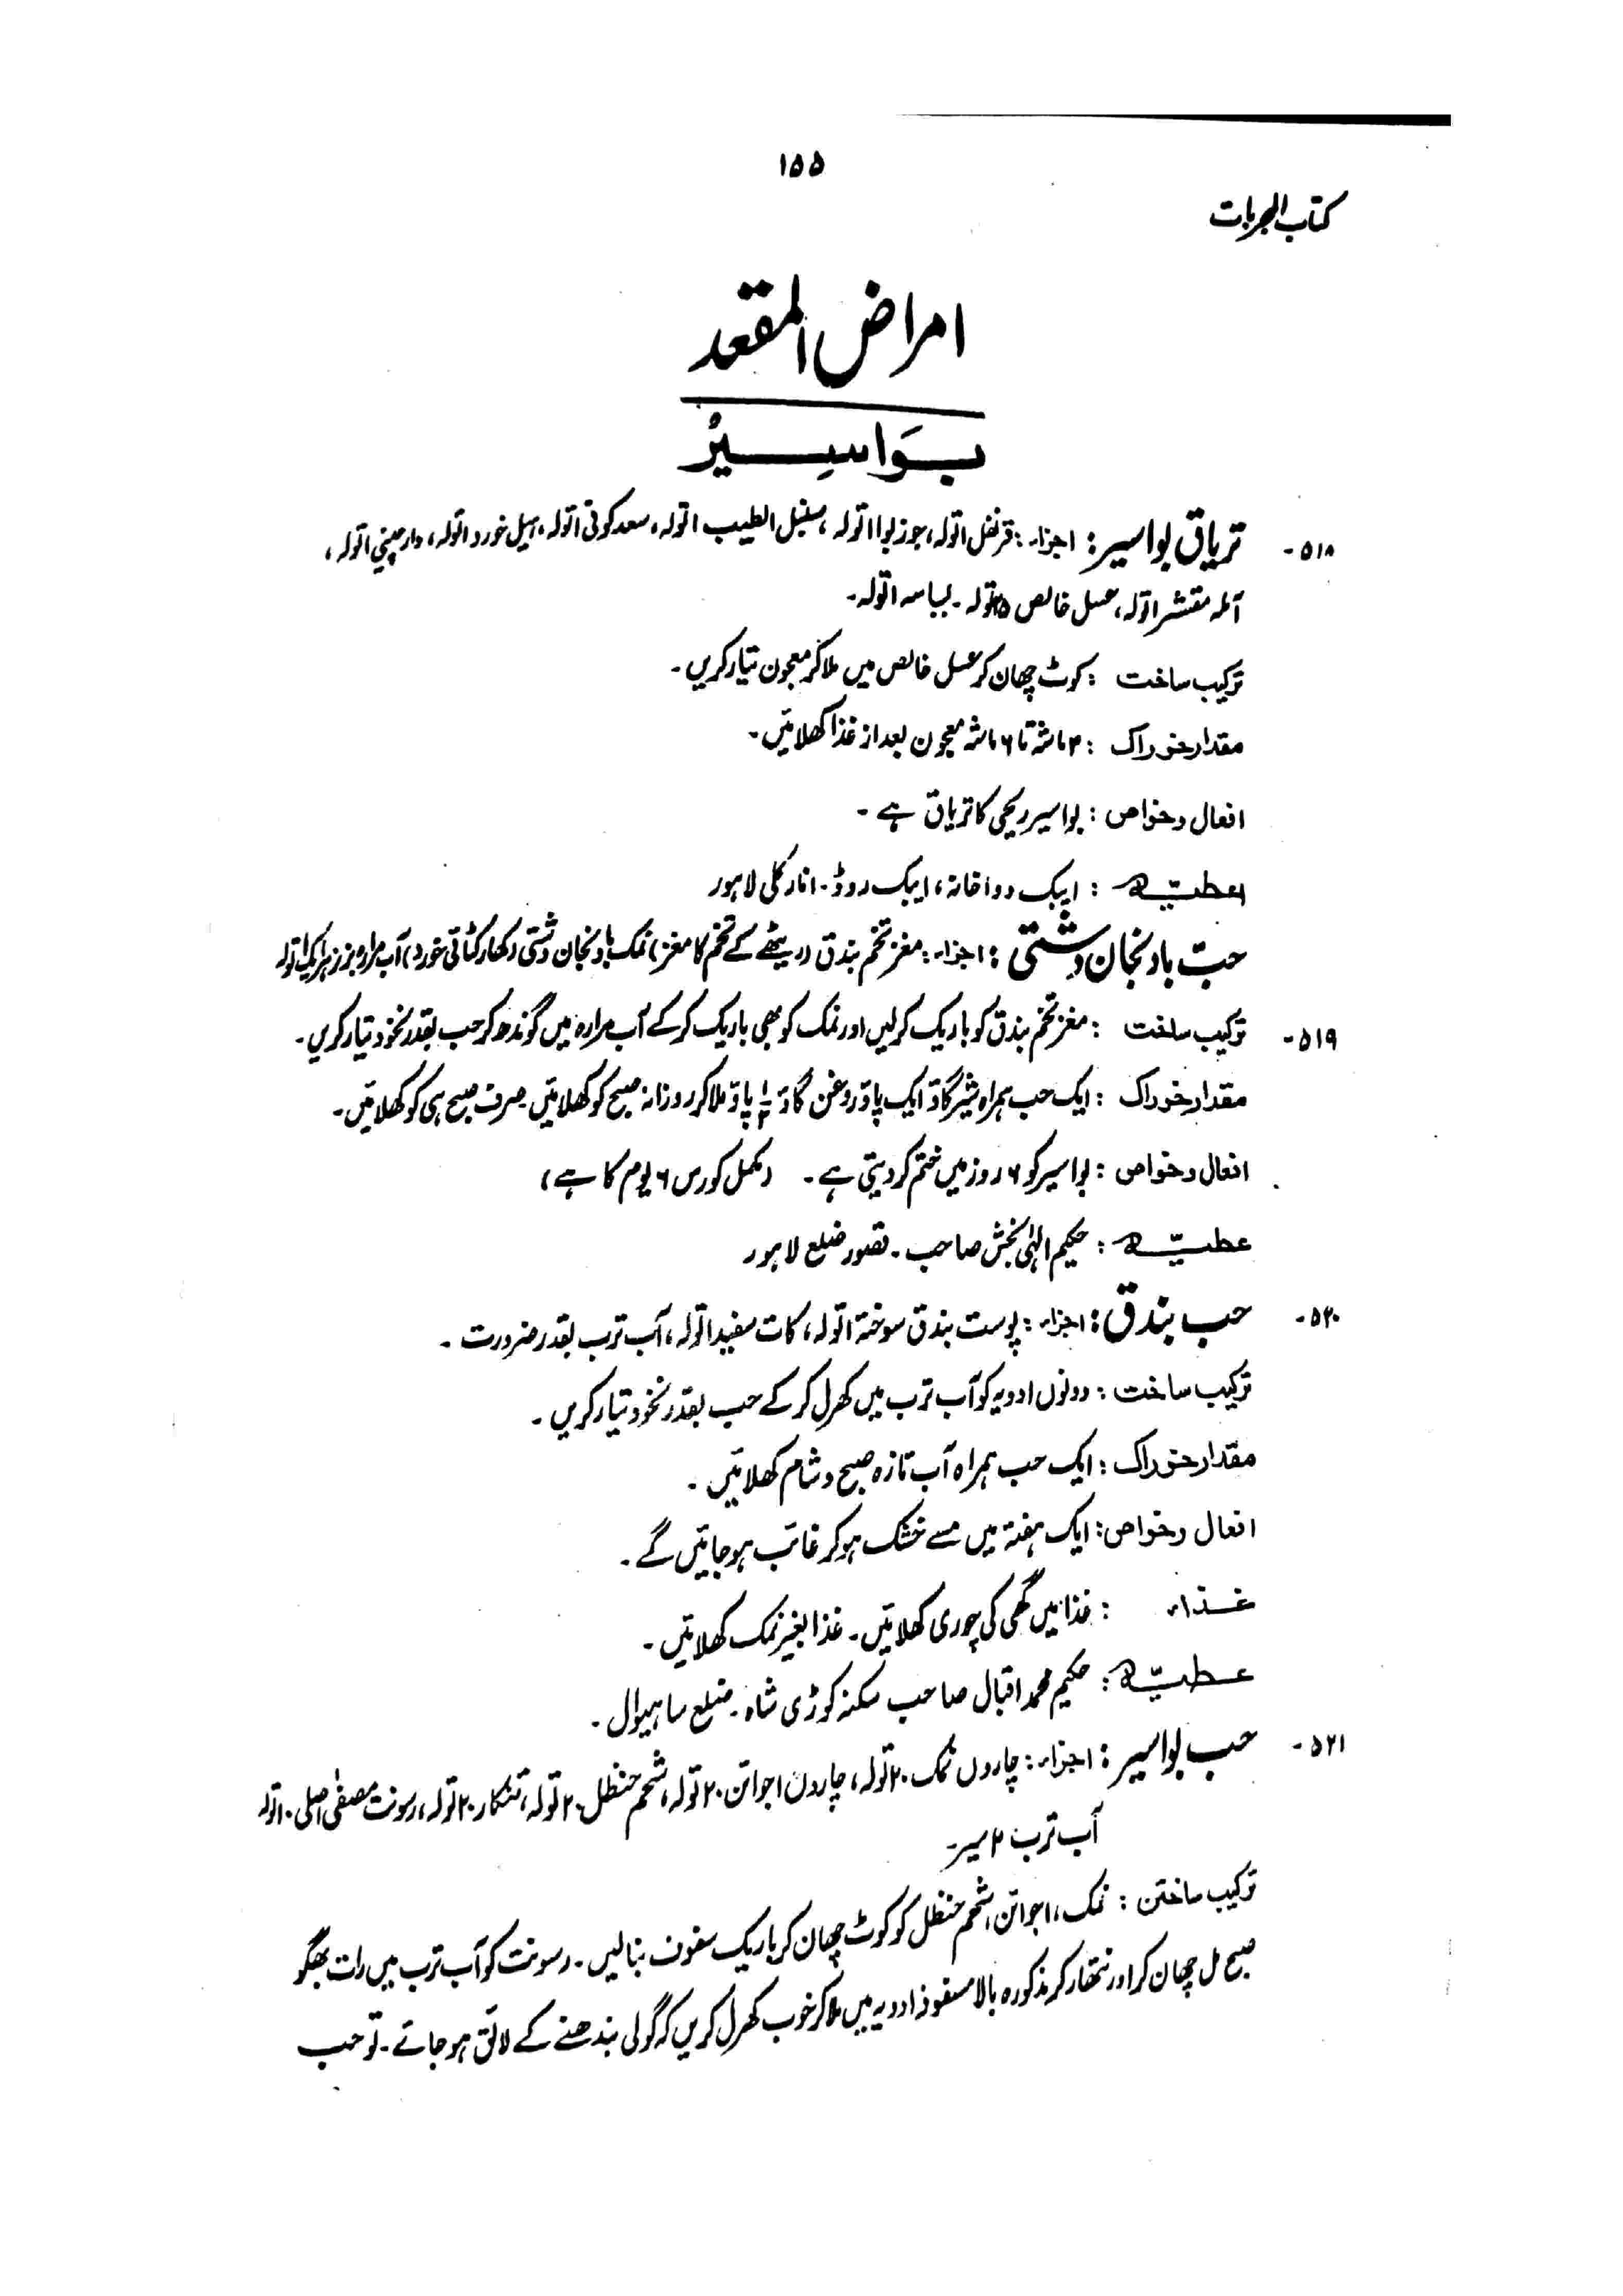 ۱۵۵
کتاب المجربات
امراض المقعد
بَواسِیْر
۵۱۸- تریاق بواسیر: اجزاء: قرنفل اتولہ، جوز بوا اتولہ، سنبل الطیب اتولہ، سعد کوفی اتولہ، ہیل خورد اتولہ، دارچینی اتولہ،
آملہ مقشر اتولہ، عسل خالص تولہ۔ بسباسہ اتولہ۔
ترکیب ساخت : کوٹ چھان کر عسل خالص میں ملا کر معجون تیار کریں۔
مقدار خوراک : ۳ ماشہ تا ۶ ماشہ معجون بعد از غذا کھلائیں۔
افعال و خواص : بواسیر ریحی کا تریاق ہے۔
عطیّہ : ایبک دواخانہ، ایبک روڈ۔ انارکلی لاہور
حب بادنجان دشتی : اجزاء: مغز تخم بندق (ریٹھے کے تخم کا مغز) نمک بادنجان دشتی (کھار کٹائی خورد) آب مرارہ بز ہر ایک اتولہ
۵۱۹- ترکیب ساخت : مغز تخم بندق کو باریک کر لیں اور نمک کو بھی باریک کر کے آب مرارہ میں گوندھ کر حب بقدر نخود تیار کریں۔
مقدار خوراک : ایک حب ہمراہ شیر گاؤ ایک پاؤ روغن گاؤ ½ پاؤ ملا کر روزانہ صبح کو کھلائیں۔ صرف صبح ہی کو کھلائیں۔
افعال و خواص : بواسیر کو ۶ روز میں ختم کر دیتی ہے۔ (مکمل کورس ۶ یوم کا ہے)
عطیّہ : حکیم الٰہی بخش صاحب۔ قصور ضلع لاہور
۵۲۰- حب بندق : اجزاء: پوست بندق سوختہ اتولہ، کات سفید اتولہ، آب ترب بقدر ضرورت۔
ترکیب ساخت : دونوں ادویہ کو آب ترب میں کھرل کر کے حب بقدر نخود تیار کریں۔
مقدار خوراک : ایک حب ہمراہ آب تازہ صبح و شام کھلائیں۔
افعال و خواص : ایک ہفتہ میں مسے خشک ہو کر غائب ہو جائیں گے۔
غذاء : غذا میں گھی کی چوری کھلائیں۔ غذا بغیر نمک کھلائیں۔
عطیّہ : حکیم محمد اقبال صاحب سکنہ کوڑی شاہ۔ ضلع ساہیوال۔
۵۲۱- حب بواسیر : اجزاء: چاروں نمک ۲۰ تولہ، چاروں اجوائن ۲۰ تولہ، شحم حنظل ۲۰ تولہ، تنکار ۲۰ تولہ، رسونت مصفیٰ اصلی ۱۰ تولہ
آب ترب ۲ سیر۔
ترکیب ساختن : نمک، اجوائن، شحم حنظل کو کوٹ چھان کر باریک سفوف بنا لیں۔ رسونت کو آب ترب میں رات بھگو
صبح مل چھان کر اور نتھار کر مذکورہ بالا مسفوذ ادویہ میں ملا کر خوب کھرل کریں کہ گولی بندھنے کے لائق ہو جائے۔ تو حب